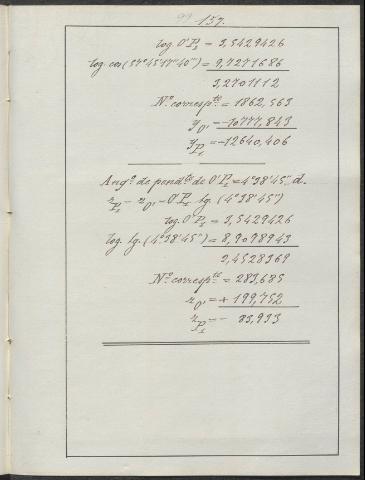 99 157.
log. O'P₁ = 3,5429426
log. cos (57°45'17"40''') = 9,7271686
3,2701112
N.º corresp.te = 1862,563
y O' = -10777,843
y P₁ = -12640,406
Ang.º de pend.te de O'P₁ = 4°38'45" d.
z P₁ = z O' - O'P₁ tg. (4°38'45")
log. O'P₁ = 3,5429426
log. tg. (4°38'45") = 8,9098943
2,4528369
N.º corresp.te = 283,685
z O' = + 199,752
z P₁ = - 83,933